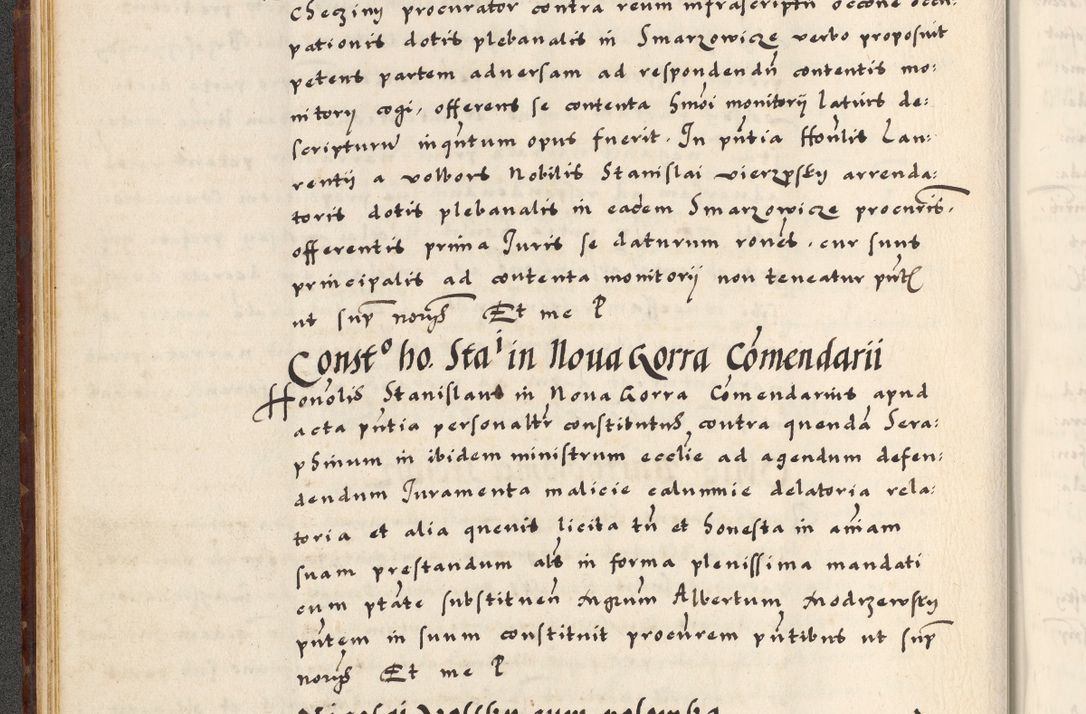 Checziny procurator contra reum infrascriptũ occone occu:
pationis dotis plebanalis in Smarzowicze verbo proposuit
petens partem adversam ad respondendũ contentis mo:
nitorij cogi. offerens se contenta hmõi monitorij latius de:
scripturũ inqñtum opus fuerit. In pñtia Honlis Lau:
rentij a wolbors Nobilis Stanislai vierzpsky arrenda:
toris dotis plebanalis in eadem Smarzowicze procuris.
offerentis prima Juris se daturum rones. cur suus
principalis ad contenta monitorij non teneatur pñt
ut sup nor Et me P
Constº ho. Staⁱ in Noua Gorra Comendarii
Honolis Stanislaus in Noua Gorra Comendarius apud
acta pñtia personaltr constitutus, contra quendã Sera:
phinum in ibidem ministrum ecclie ad agendum defen:
dendum Juramenta malicie calumnie delatoria rela:
toria et alia quevis licita tñ et honesta in aĩam
suam prestandum als in forma plenissima mandati
cum ptãte substituen Mgrum Albertum Modrzewsky
pñtem in suum constituit procurem pñtibus ut sup
nor Et me P